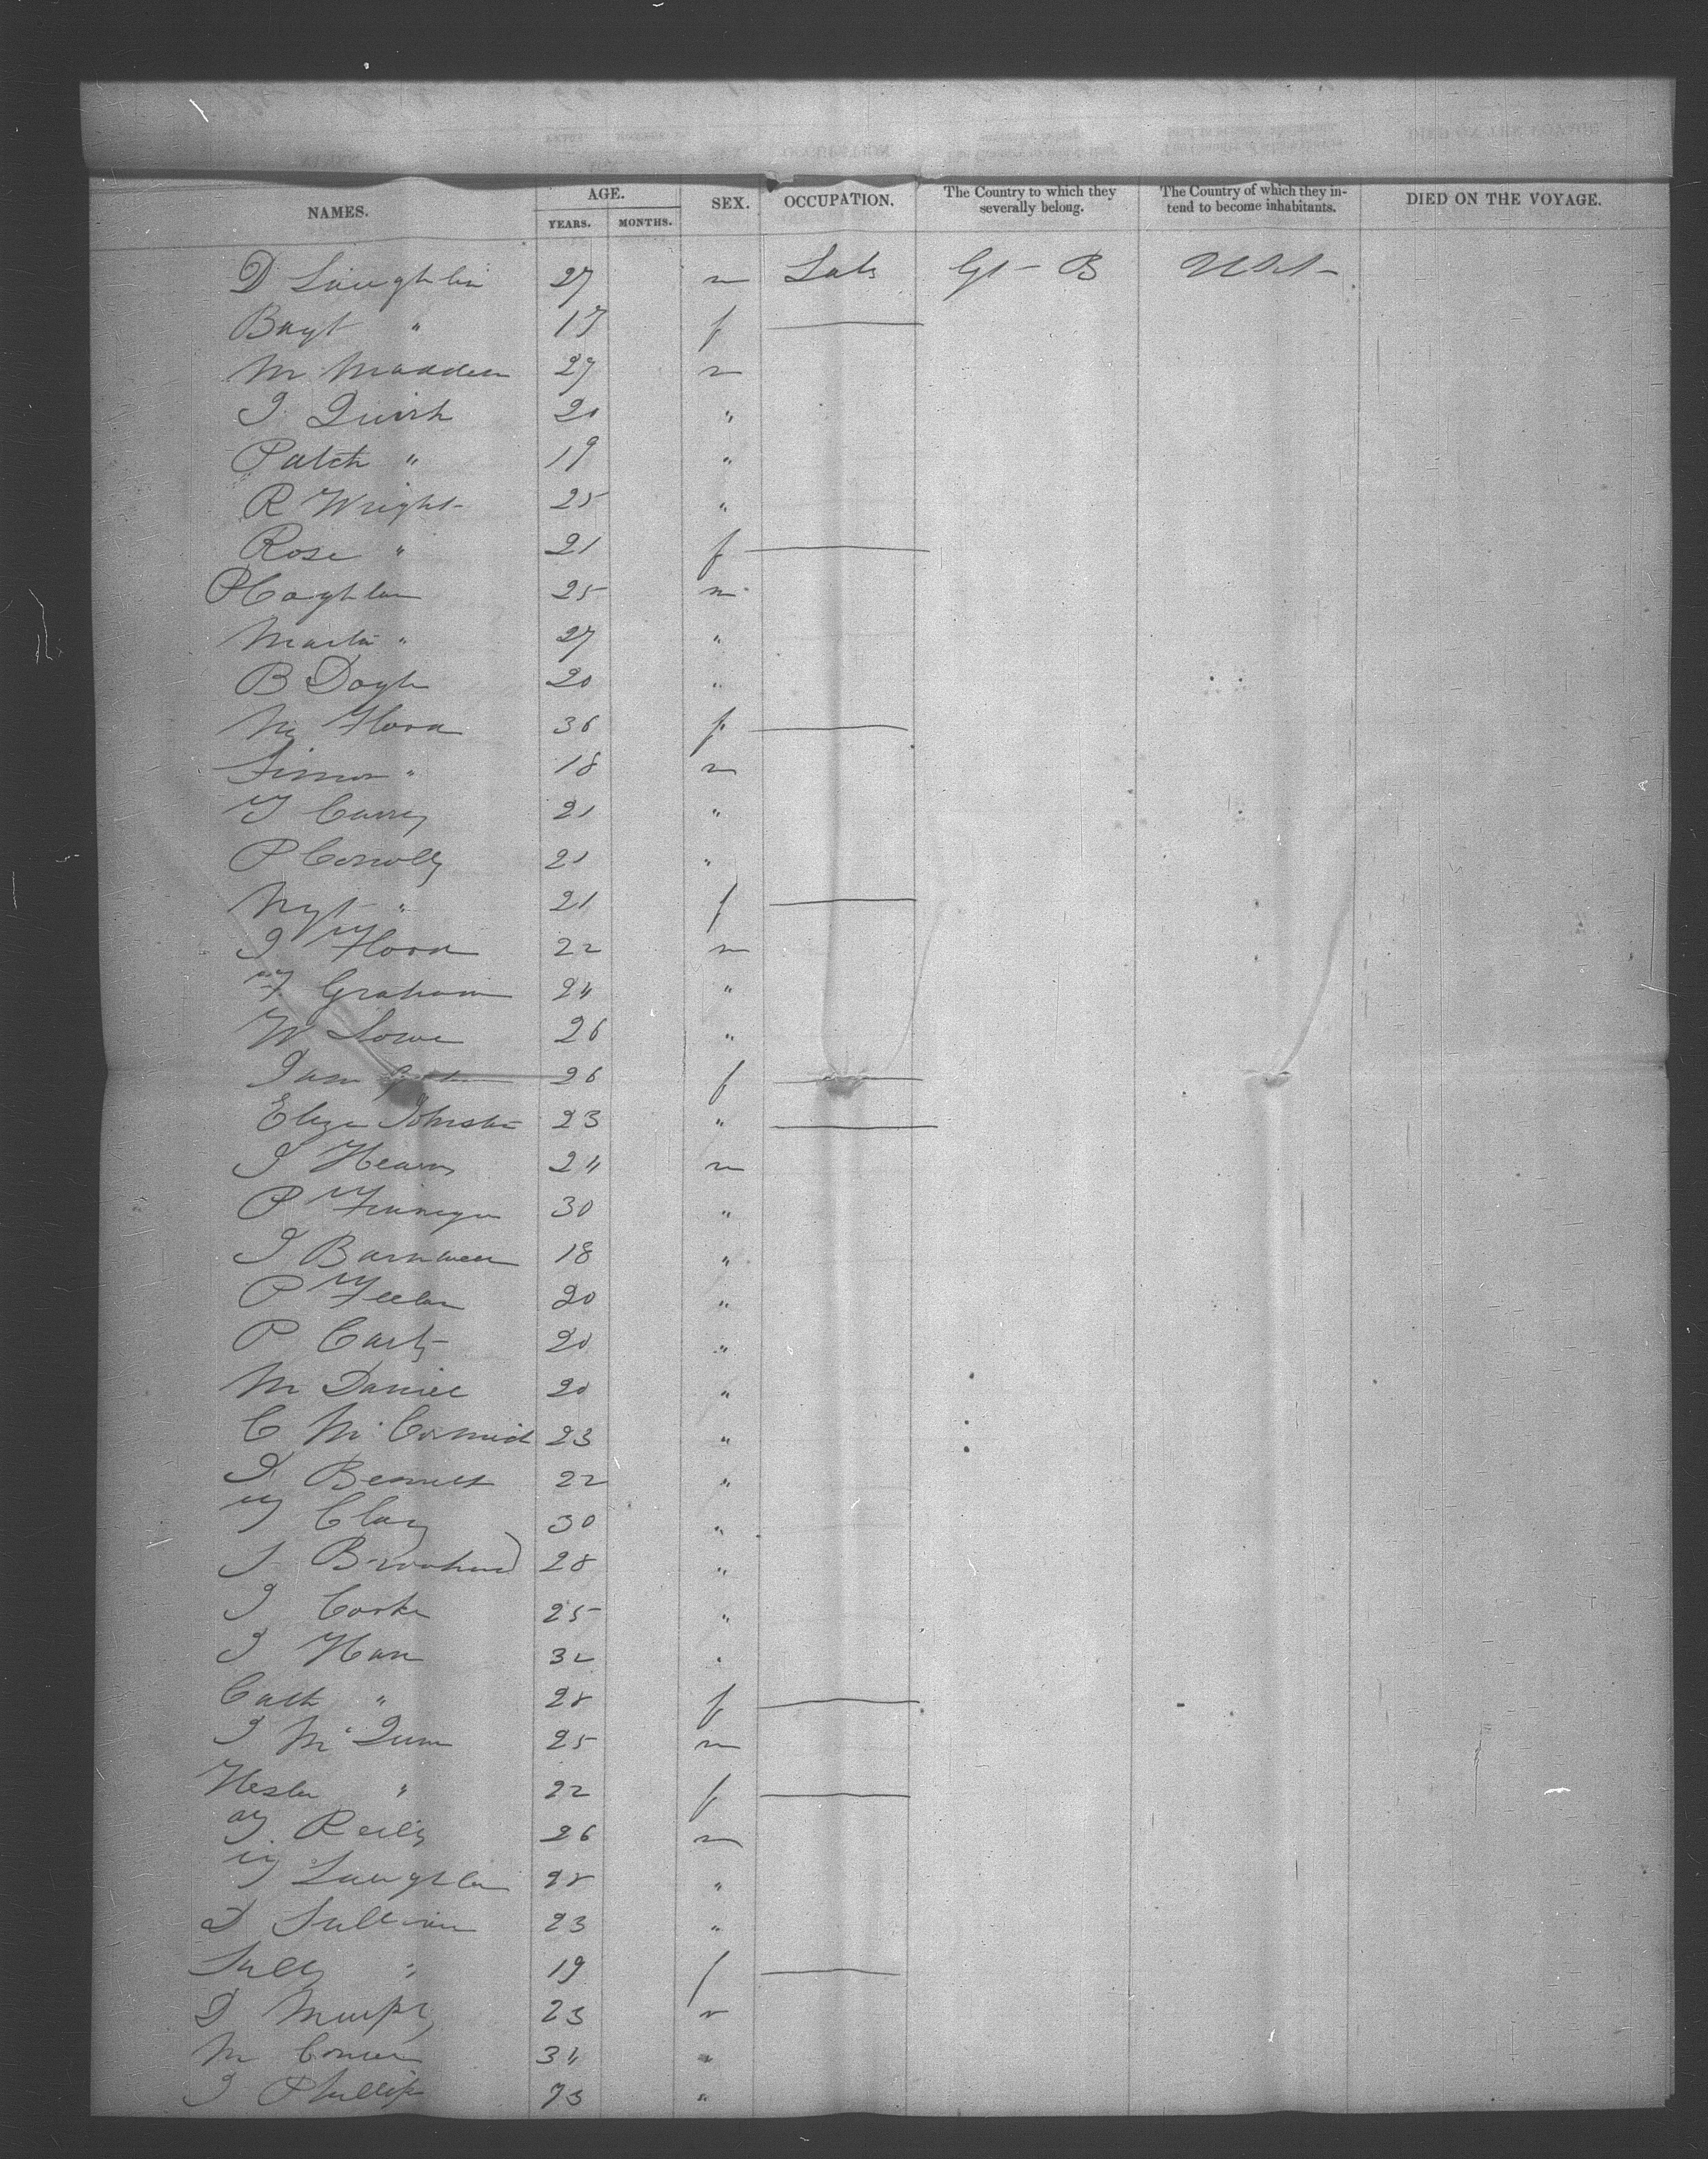 NAMES. AGE. YEARS. MONTHS. SEX. OCCUPATION. The Country to which they severally belong. The Country of which they intend to become inhabitants. DIED ON THE VOYAGE.
D Laughlin 27 m Lab Gt B
Bagt " 17 f
M Madden 27 m
J Quirk 20 "
Patck " 19 "
R Wright 25 "
Rose " 21 f
P Coghlan 25 m
Martin " 27 "
B Doyle 20 "
M Flood 36 f
Simon " 18 m
T Carey 21 "
P Conolly 21 "
Mgt " 21 f
J Flood 22 m
F Graham 24 "
W Lowe 26 "
Jane 26 f
Eliza Johnston 23 "
J Hearn 24 m
P Finnegan 30 "
J Barnwell 18 "
P Feelan 20 "
P Carty 20 "
M Daniel 20 "
C McCormick 23 "
J Bennett 22 "
T Clary 30 "
J 28 "
J Cooke 25 "
J Hare 32 "
Cath " 28 f
J McQuin 25 m
Hester " 22 f
T Reilly 26 m
T Laughlin 28 "
D Sullivan 23 "
" 19 f
D Murphy 23 m
M 34 "
J Phillips 73 "